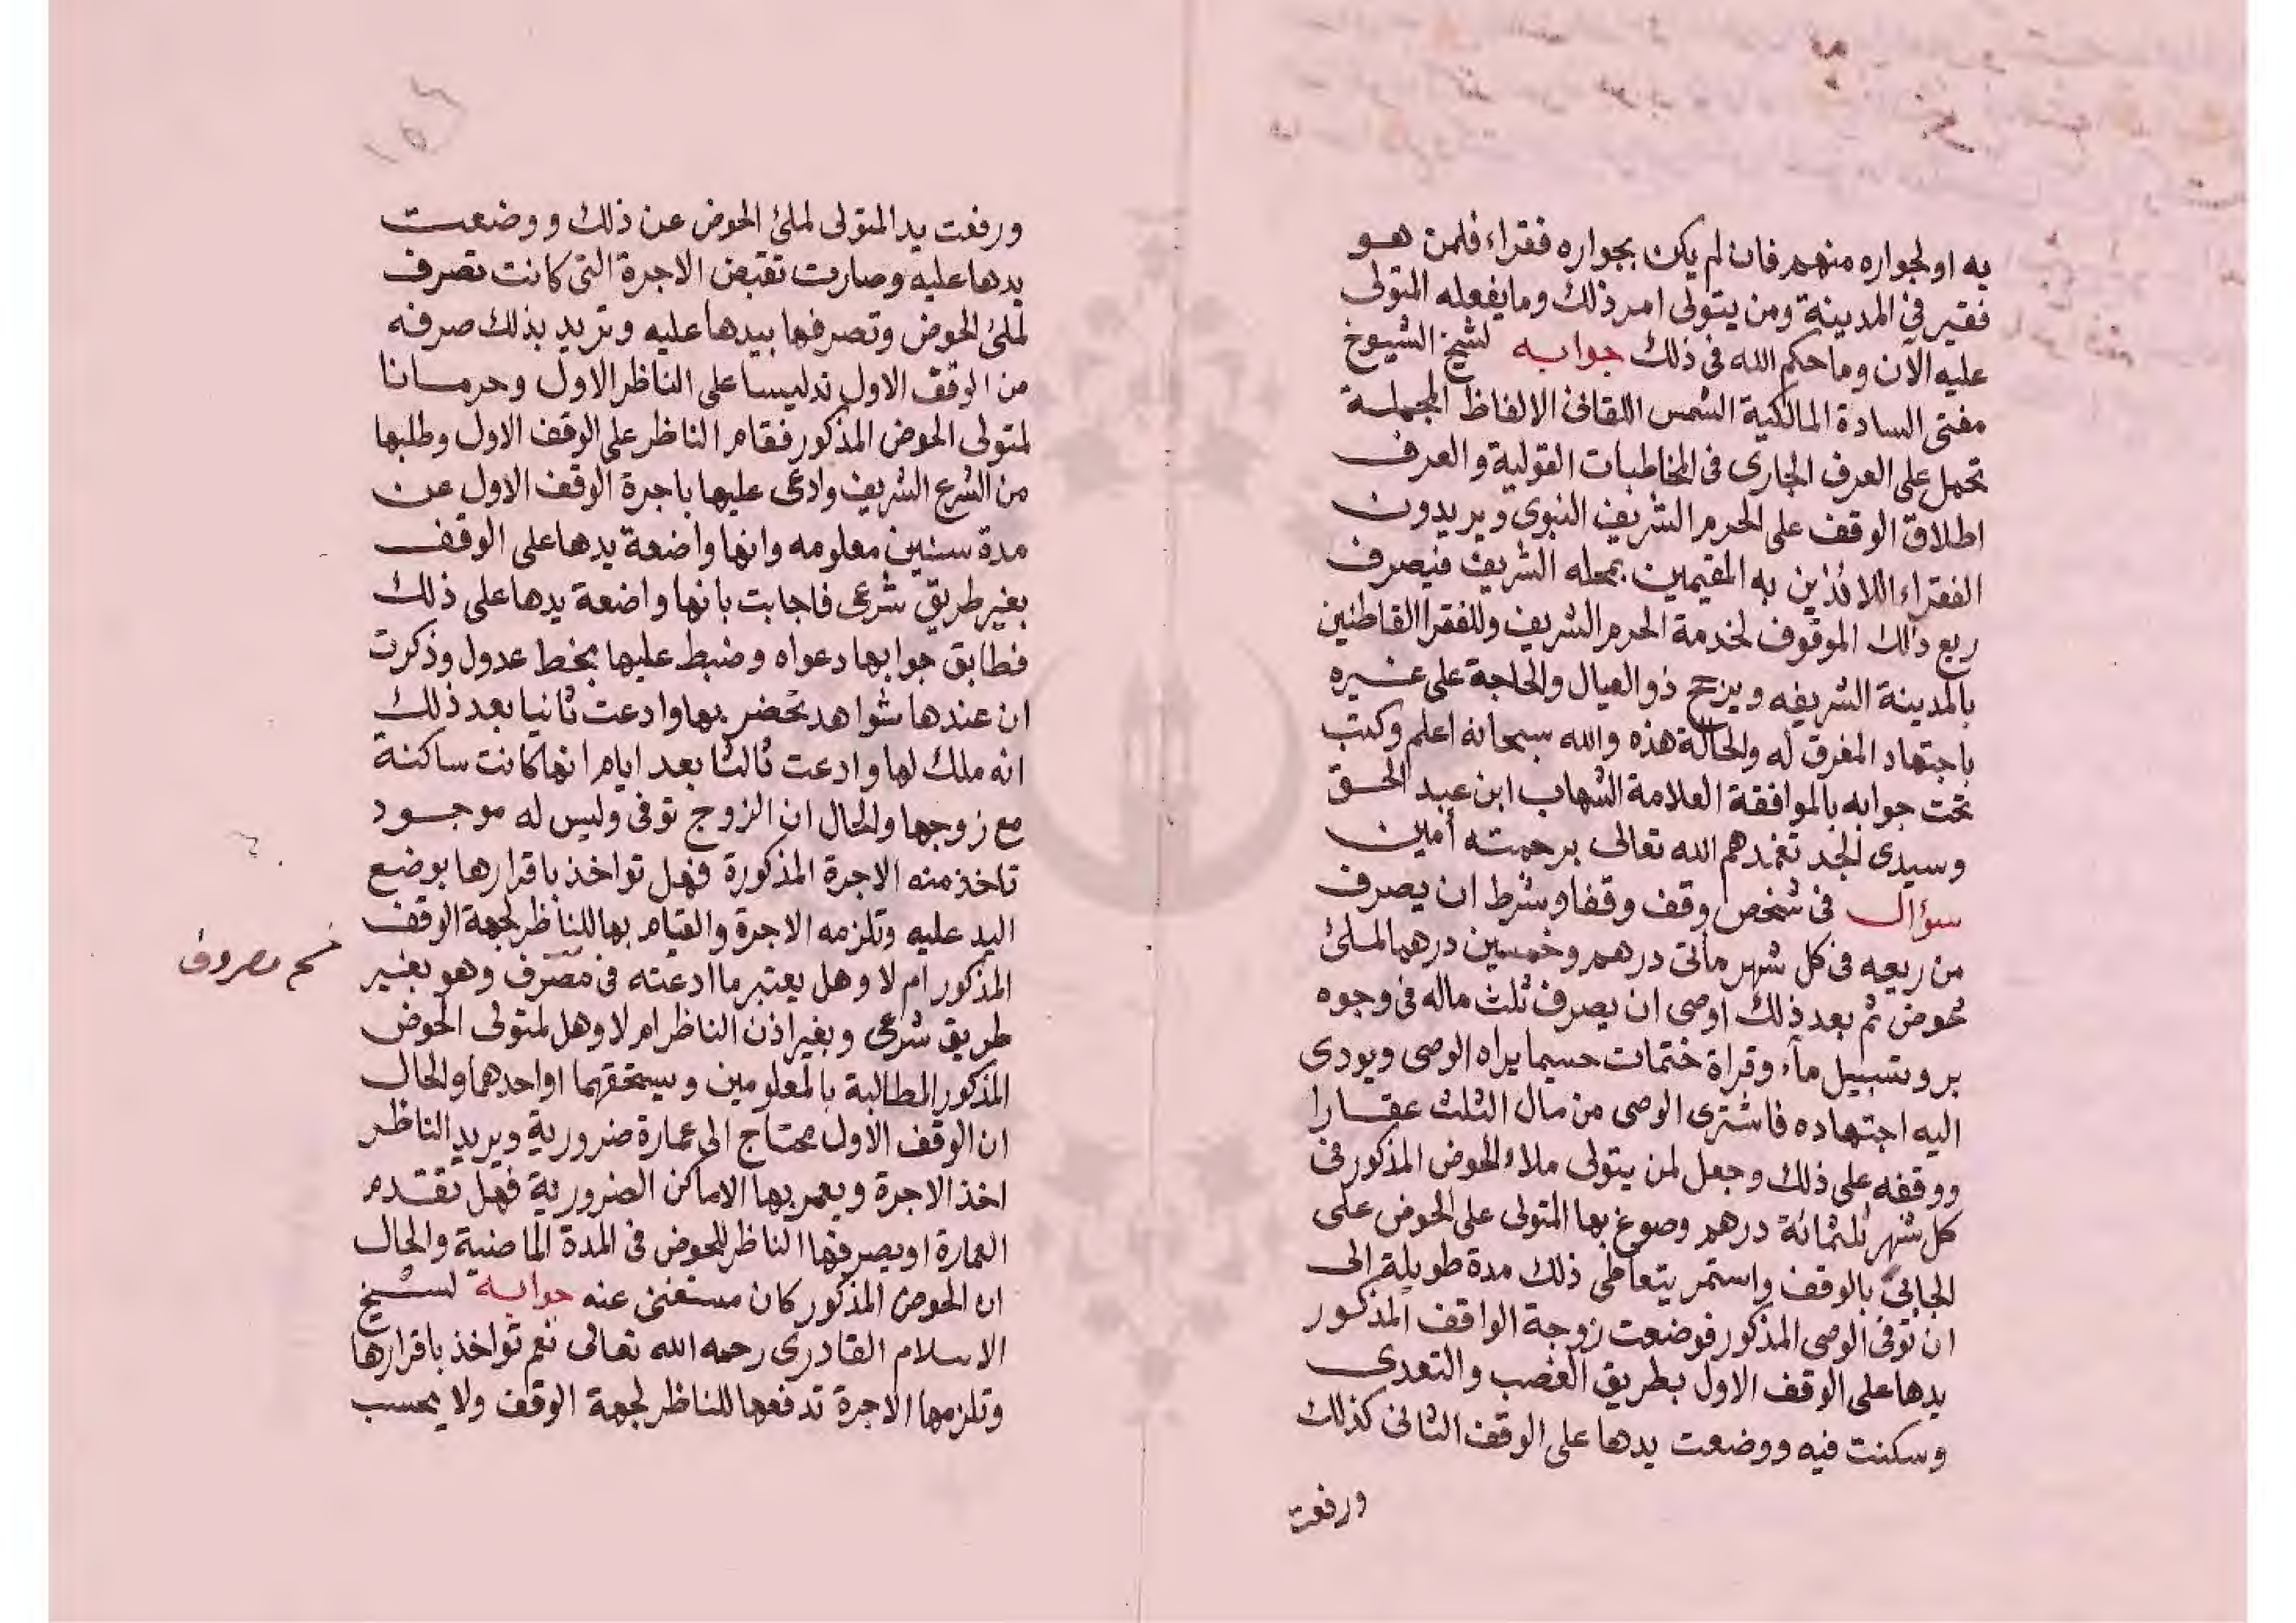 به او لجواره منهم فان لم يكن بجواره فقراء فلمن هو
فقير في المدينة ومن يتولى امر ذلك وما يفعله المتولى
عليه الآن وما حكم الله في ذلك جوابه لشيخ الشيوخ
مفتى السادة المالكية الشمس اللقانى الالفاظ المجملة
تحمل على العرف الجارى فى المخاطبات القولية والعرف
اطلاق الوقف على الحرم الشريف النبوى ويريدون
الفقراء اللائذين به المقيمين بمحله الشريف فيصرف
ريع ذلك الموقوف لخدمة الحرم الشريف وللفقرا القاطنين
بالمدينة الشريفه ويرجح ذو العيال والحاجة على غيره
باجتهاد المفرق له والحالة هذه والله سبحانه اعلم وكتب
تحت جوابه بالموافقة العلامة الشهاب ابن عبد الحق
وسيدى الجد تغمدهم الله تعالى برحمته أمين
سؤال فى شخص وقف وقفا وشرط ان يصرف
من ريعه فى كل شهر مأتى درهم وخمسين درهما لملئ
حوض ثم بعد ذلك اوصى ان يصرف ثلث ماله فى وجوه
بر وتسبيل مآء وقراة ختمات حسبما يراه الوصى ويودى
اليه اجتهاده فاشترى الوصى من مال الثلث عقارا
ووقفه على ذلك وجعل لمن يتولى ملاء الحوض المذكور فى
كل شهر ثلثمائة درهم وصوغ بها المتولى على الحوض على
الجابى بالوقف واستمر يتعاطى ذلك مدة طويلة الى
ان توفى الوصى المذكور فوضعت زوجة الواقف المذكور
يدها على الوقف الاول بطريق الغصب والتعدى
وسكنت فيه ووضعت يدها على الوقف الثانى كذلك
ورفعت
ورفعت يد المتولى لملئ الحوض عن ذلك ووضعت
يدها عليه وصارت تقبض الاجرة التى كانت تصرف
لملئ الحوض وتصرفها بيدها عليه وتريد بذلك صرفه
من الوقف الاول تدليسا على الناظر الاول وحرمانا
لمتولى الحوض المذكور فقام الناظر على الوقف الاول وطلبها
من الشرع الشريف وادعى عليها باجرة الوقف الاول عن
مدة سنين معلومه وانها واضعة يدها على الوقف
بغير طريق شرعى فاجابت بانها واضعة يدها على ذلك
فطابق جوابها دعواه وضبط عليها بخط عدول وذكرت
ان عندها شواهد تحضر بها وادعت ثانيا بعد ذلك
انه ملك لها وادعت ثالثا بعد ايام انها كانت ساكنة
مع زوجها والحال ان الزوج توفى وليس له موجود
تاخذ منه الاجرة المذكورة فهل تواخذ باقرارها بوضع
اليد عليه وتلزمه الاجرة والقيام بها للناظر لجهة الوقف
المذكور ام لا وهل يعتبر ما ادعته فى مصرف وهو بغير
مصروف
طريق شرعى وبغير اذن الناظر ام لا وهل لمتولى الحوض
المذكور المطالبة بالمعلومين ويستحقهما او احدهما والحال
ان الوقف الاول محتاج الى عمارة ضرورية ويريد الناظر
اخذ الاجرة ويعمر بها الاماكن الضرورية فهل تقدم
العمارة او يصرفها الناظر للحوض فى المدة الماضية والحال
ان الحوض المذكور كان مستغنى عنه جوابه لشيخ
الاسلام القادرى رحمه الله تعالى نعم تواخذ باقرارها
وتلزمها الاجرة تدفعها للناظر لجهة الوقف ولا يحسب